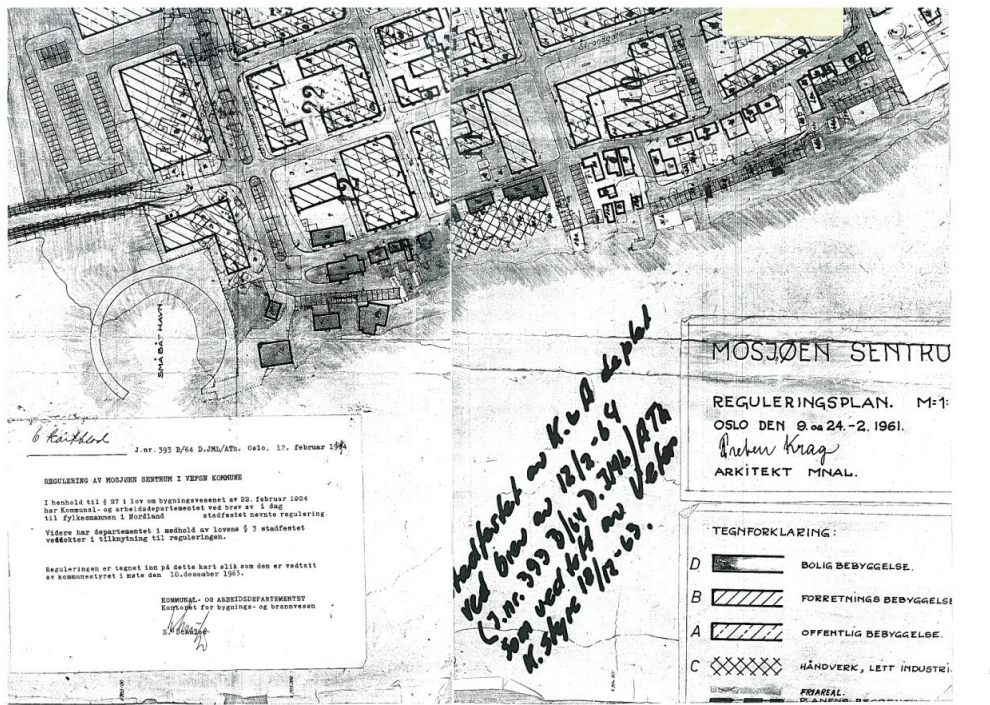 Strandgata
22
10
SMÅBÅTHAVN
J.nr. 393 B/64 D.JML/ATh. Oslo, 12. februar 1964
REGULERING AV MOSJØEN SENTRUM I VEFSN KOMMUNE
I henhold til § 27 i lov om bygningsvesenet av 22. februar 1924
har Kommunal- og arbeidsdepartementet ved brev av i dag
til fylkesmannen i Nordland stadfestet nevnte regulering.
Videre har departementet i medhold av lovens § 3 stadfestet
vedtekter i tilknytning til reguleringen.
Reguleringen er tegnet inn på dette kart slik som den er vedtatt
av kommunestyret i møte den 10.desember 1963.
KOMMUNAL- OG ARBEIDSDEPARTEMENTET
Kontoret for bygnings- og brannvesen
tadfestet av K. & A deptet
ved brev av 12/2-64
(J.nr. 393 B/64 D.
som vedtatt av Vefsn
K. styre 10/12-63.
MOSJØEN SENTRU
REGULERINGSPLAN. M=1:
OSLO DEN 9. og 24.-2. 1961.
Preben Krag
ARKITEKT MNAL.
TEGNFORKLARING:
D BOLIG BEBYGGELSE.
B FORRETNINGS BEBYGGELSE
A OFFENTLIG BEBYGGELSE.
C HÅNDVERK, LETT INDUSTRI.
FRIAREAL.